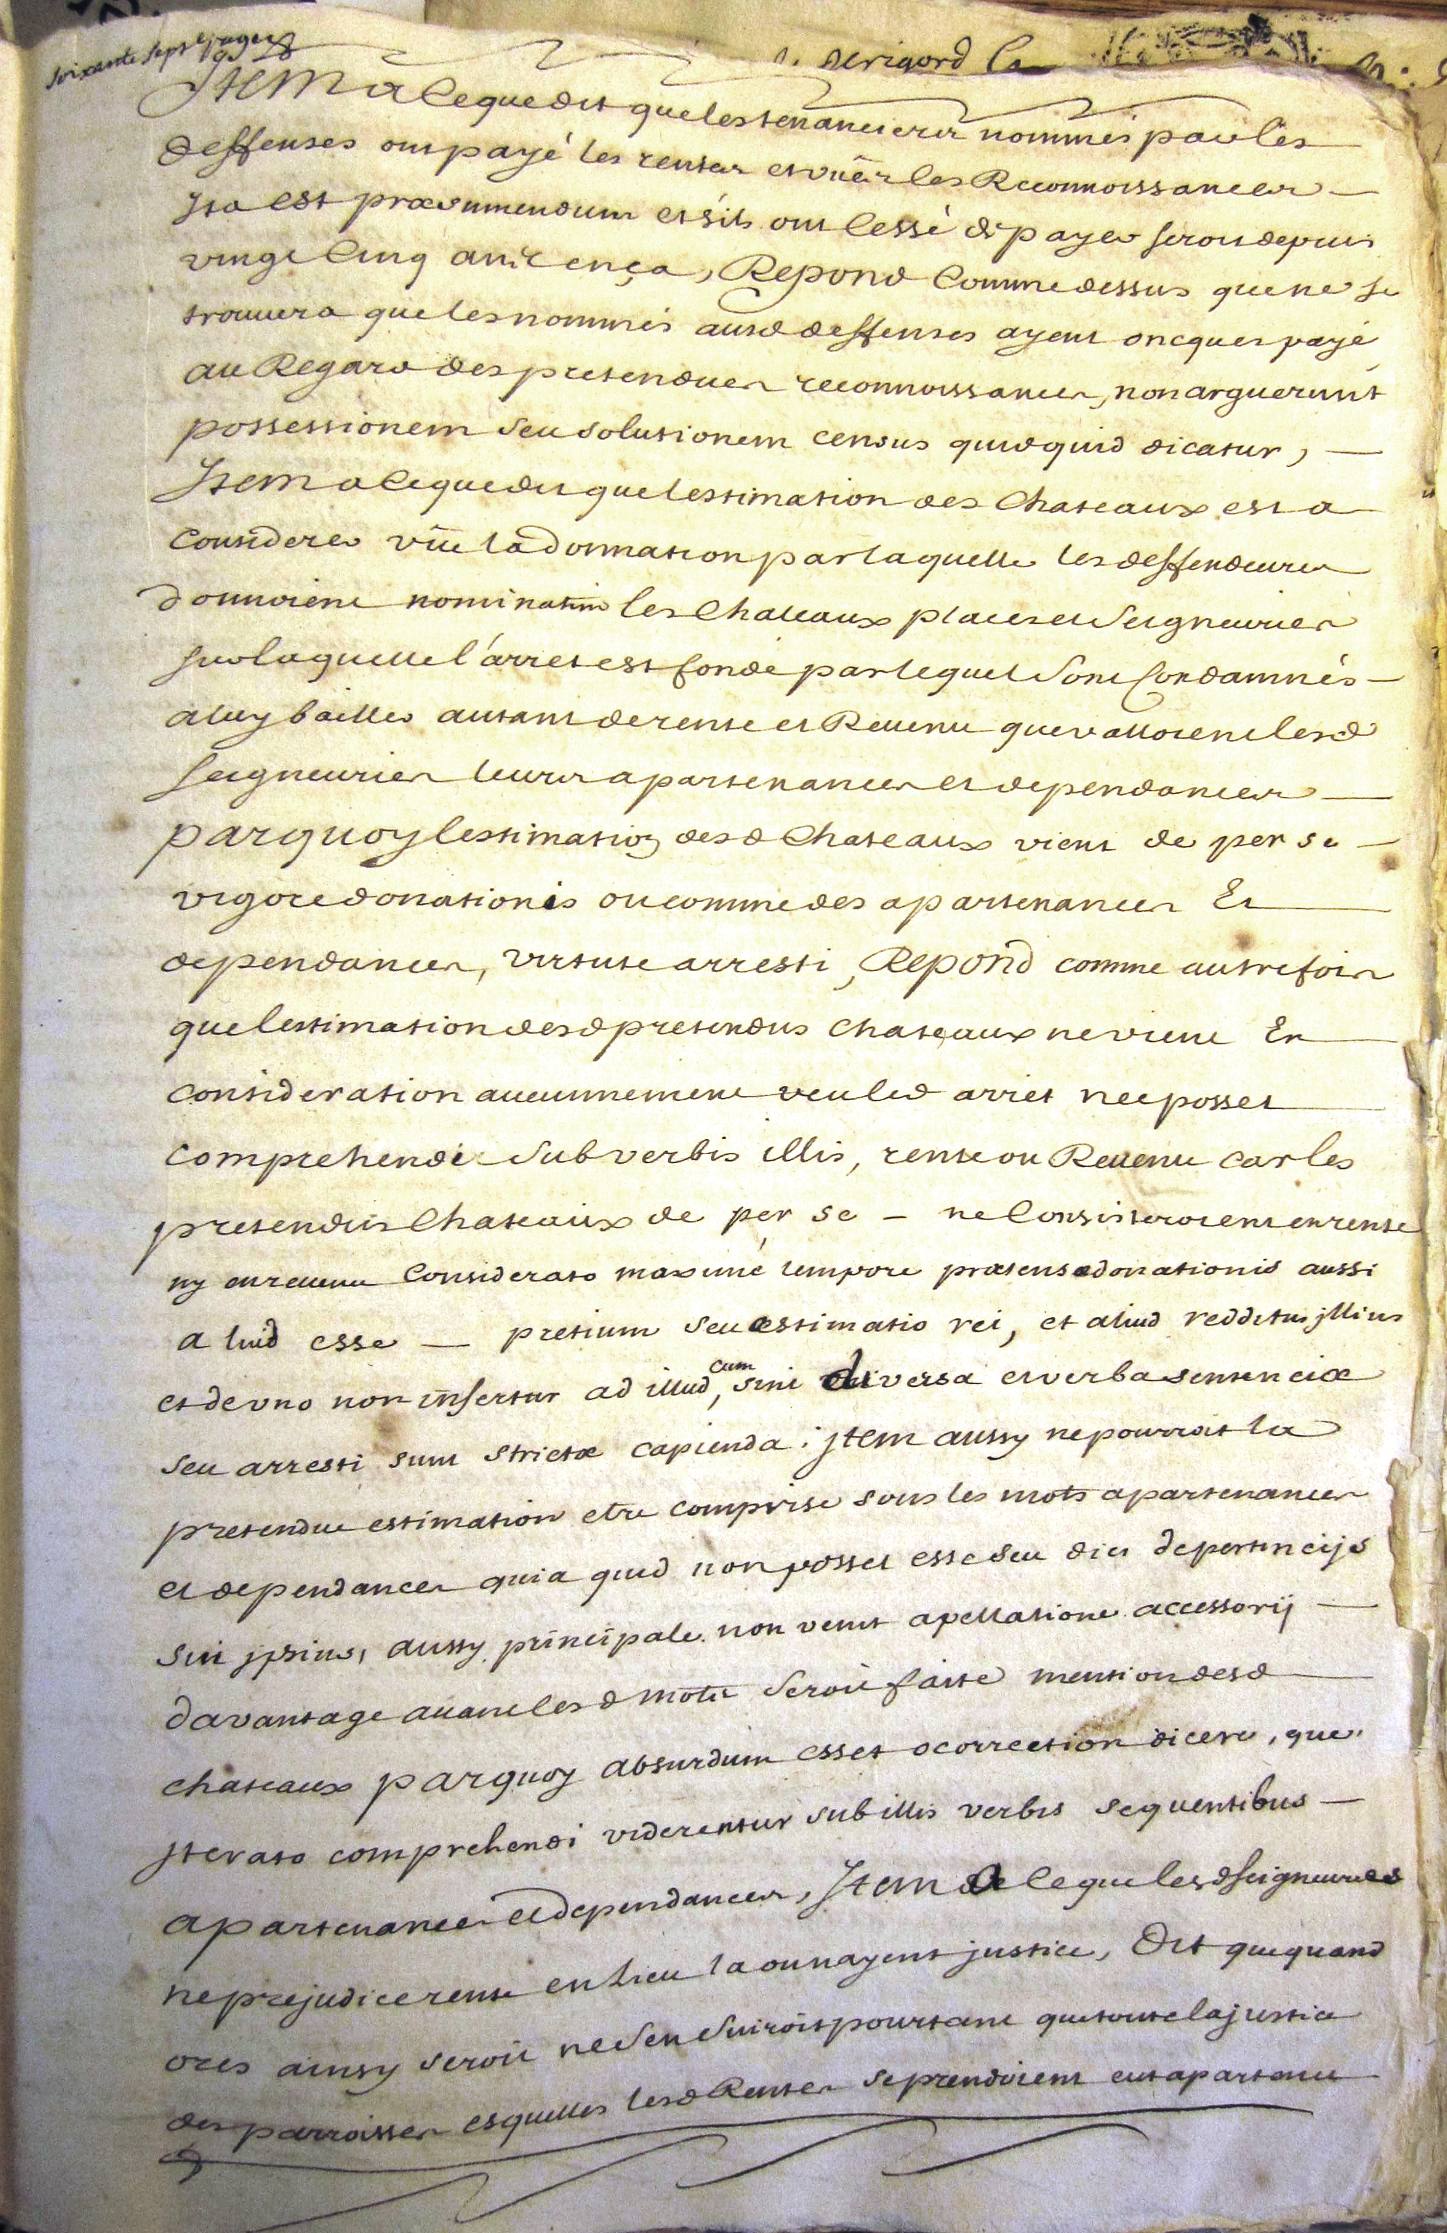 soixante sept pages
perigord la
Item a ce que dit que les tenanciers nommés par les
deffenses ont payé les rentes et vuës les Reconnoissances
jta est præsumendum et s'ils ont cessé de payer seroit depuis
vingt cinq ans ença, Repond comme dessus que ne se
trouuera que les nommés ausd deffenses ayent oncques payé
au Regard des pretendues reconnoissances, non arguerunt
possessionem seu solutionem census quidquid dicatur,
Item a ce que dit que lestimation des Chateaux est a
considerer vûe la donnation par laquelle les deffendeurs
donnoient nominatim les Chateaux places et Seigneuries
sur laquelle l'arret est fondé par lequel sont Condamnés
a luy bailler autant de rente et Reuenu que valloient lesd
seigneuries leurs apartenances et dependances
parquoy lestimation desd Chateaux vient de per se
vigore donationis ou comme des apartenances Et
dependances, virtute arresti, Repond comme autrefois
que lestimation desd pretendus chateaux ne vient En
consideration aucunnement veu led arret nec posset
comprehendi sub verbis illis, rente ou Reuenu car les
pretendus Chateaux de per se – ne Consisteroient en rente
ny en reuenu Considerato maximé tempore prætensæ donationis aussi
aliud esse — pretium seu æstimatio rei, et aliud redditus jllius
et de vno non infertur ad illud, cum sint diversa et verba sentenciæ
seu arresti sunt strictæ capienda: jtem aussy ne pourroit la
pretendue estimation etre comprise sous les mots apartenances
et dependances quia quid non posset esse seu dici de pertinencijs
sui jpsius, aussy principale non venit apellatione accessorij
davantage auant lesd mots seroit faite mention desd
chateaux parquoy absurdum esset ocorrection dicere, que
jterato comprehendi viderentur sub illis verbis sequentibus
apartenances et dependances, Item a ce que lesd seigneuries
ne prejudice rente en lieu la ou nayent justice, Dit que quand
ores ainsy seroit ne sen suiroit pourtant que toute la justice
des parroisses esquelles lesd Rentes se prendoient eut apartenu